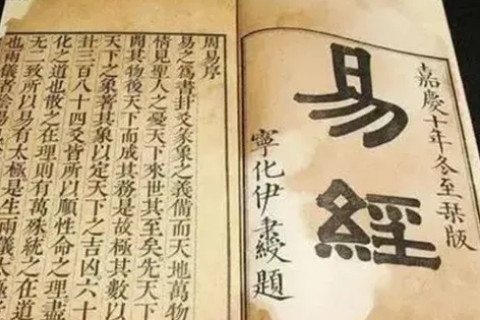 嘉慶十年冬至栞版
易經
寧化伊秉綬題
周易序
易之爲書卦爻彖象之義備而天地萬物
情見聖人之憂天下來世其至矣先天下
開其物後天下而成其務是故極其數以
天下之象著其象以定天下之吉凶六十
卦三百八十四爻皆所以順性命之理盡
化之道也散之在理則有萬殊統之在道
無二致所以易有太極是生兩儀太極
也兩儀者陰陽也